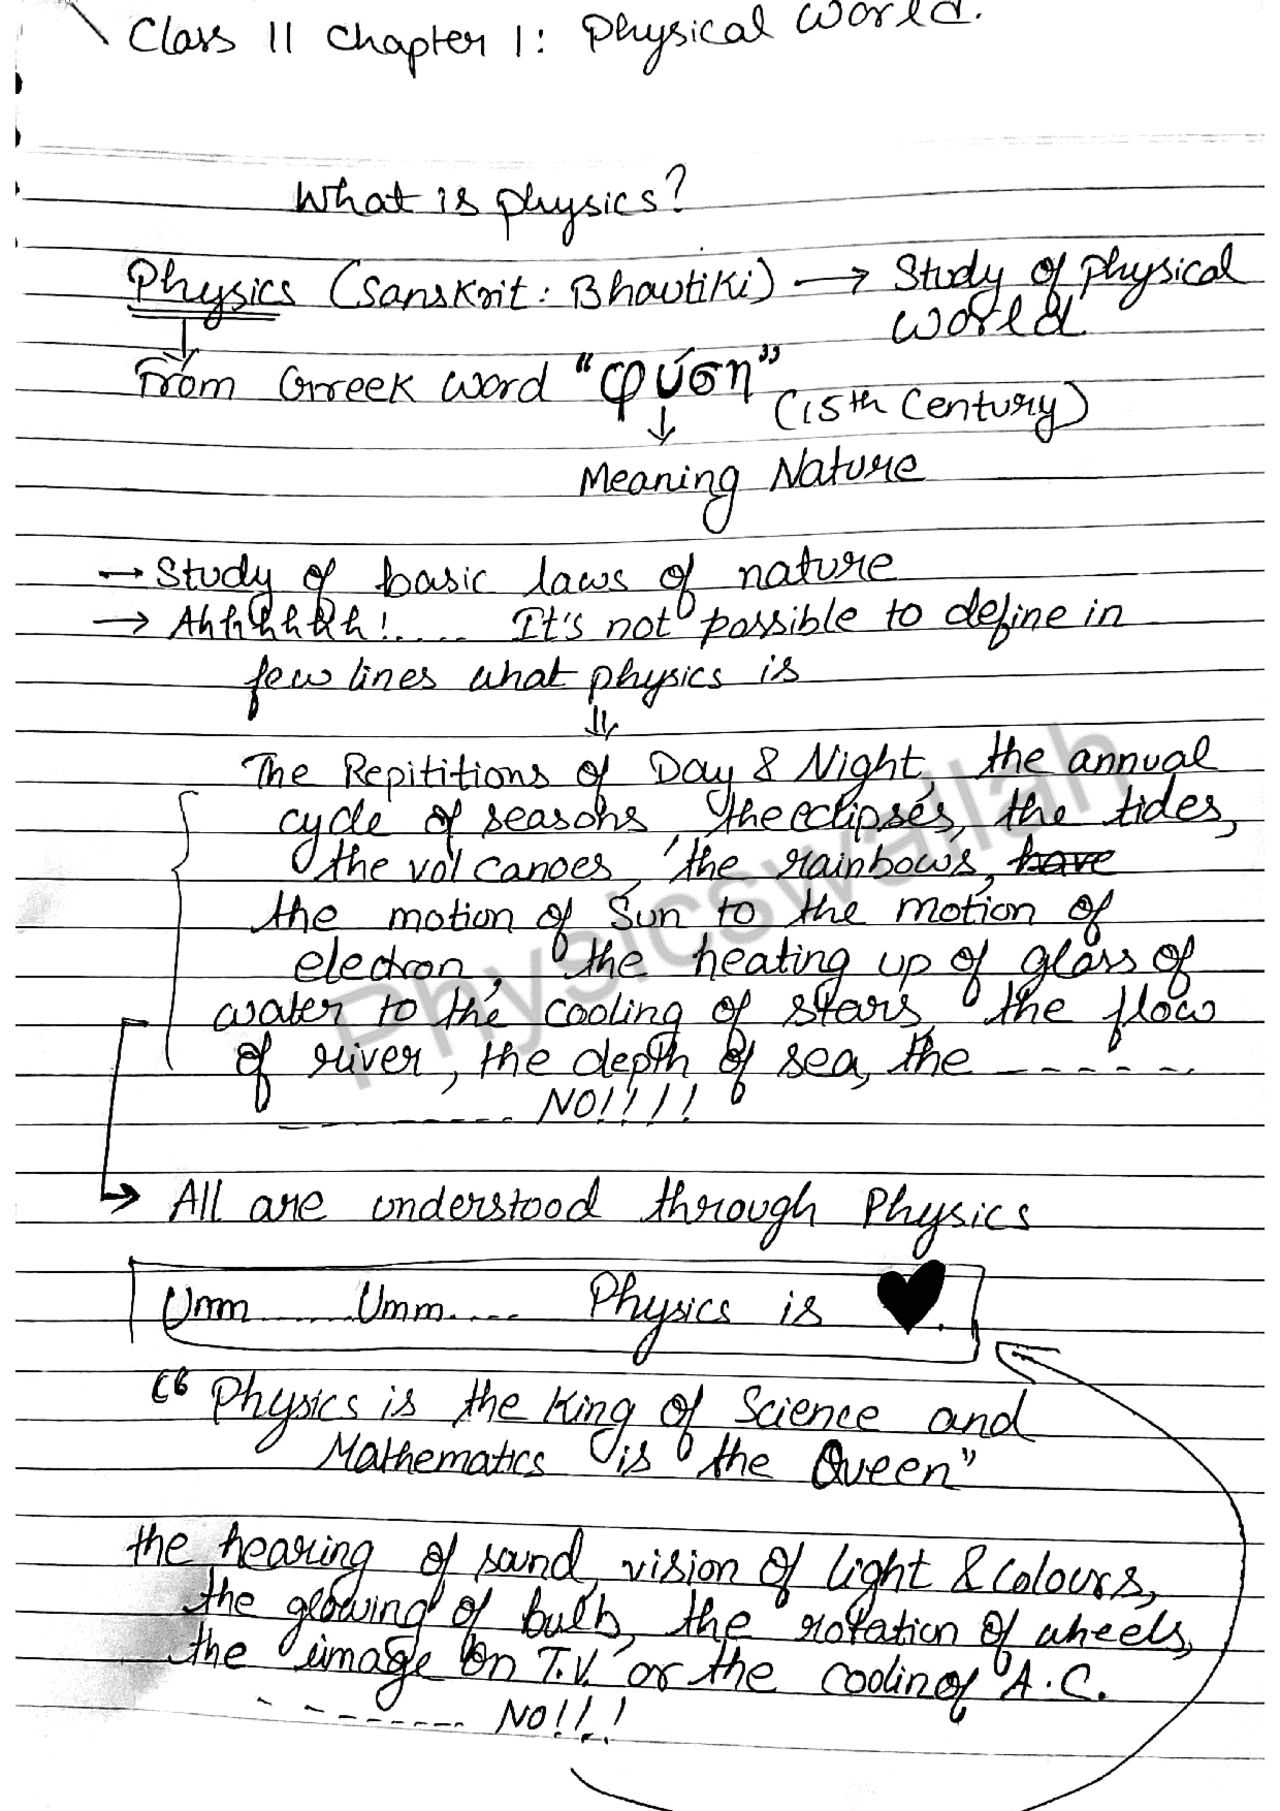 Class 11 Chapter 1: Physical World.
What is physics?
Physics (Sanskrit: Bhautiki) → Study of physical
world
From Greek word "φύση"
(15th Century)
↓
Meaning Nature
→ Study of basic laws of nature
→ Ahhhhhhh!..... It's not possible to define in
few lines what physics is
The Repititions of Day & Night, the annual
cycle of seasons, the eclipses, the tides,
the volcanoes, the rainbows, have
the motion of Sun to the motion of
electron, the heating up of glass of
water to the cooling of stars, the flow
of river, the depth of sea, the ------
---------- NO!!!!
→ All are understood through Physics
Umm......Umm.... Physics is ♥.
"Physics is the King of Science and
Mathematics is the Queen"
the hearing of sound, vision of light & colours,
the glowing of bulb, the rotation of wheels,
the image on T.V. or the coolin of A.C.
--------- NO!!!
Physicswallah